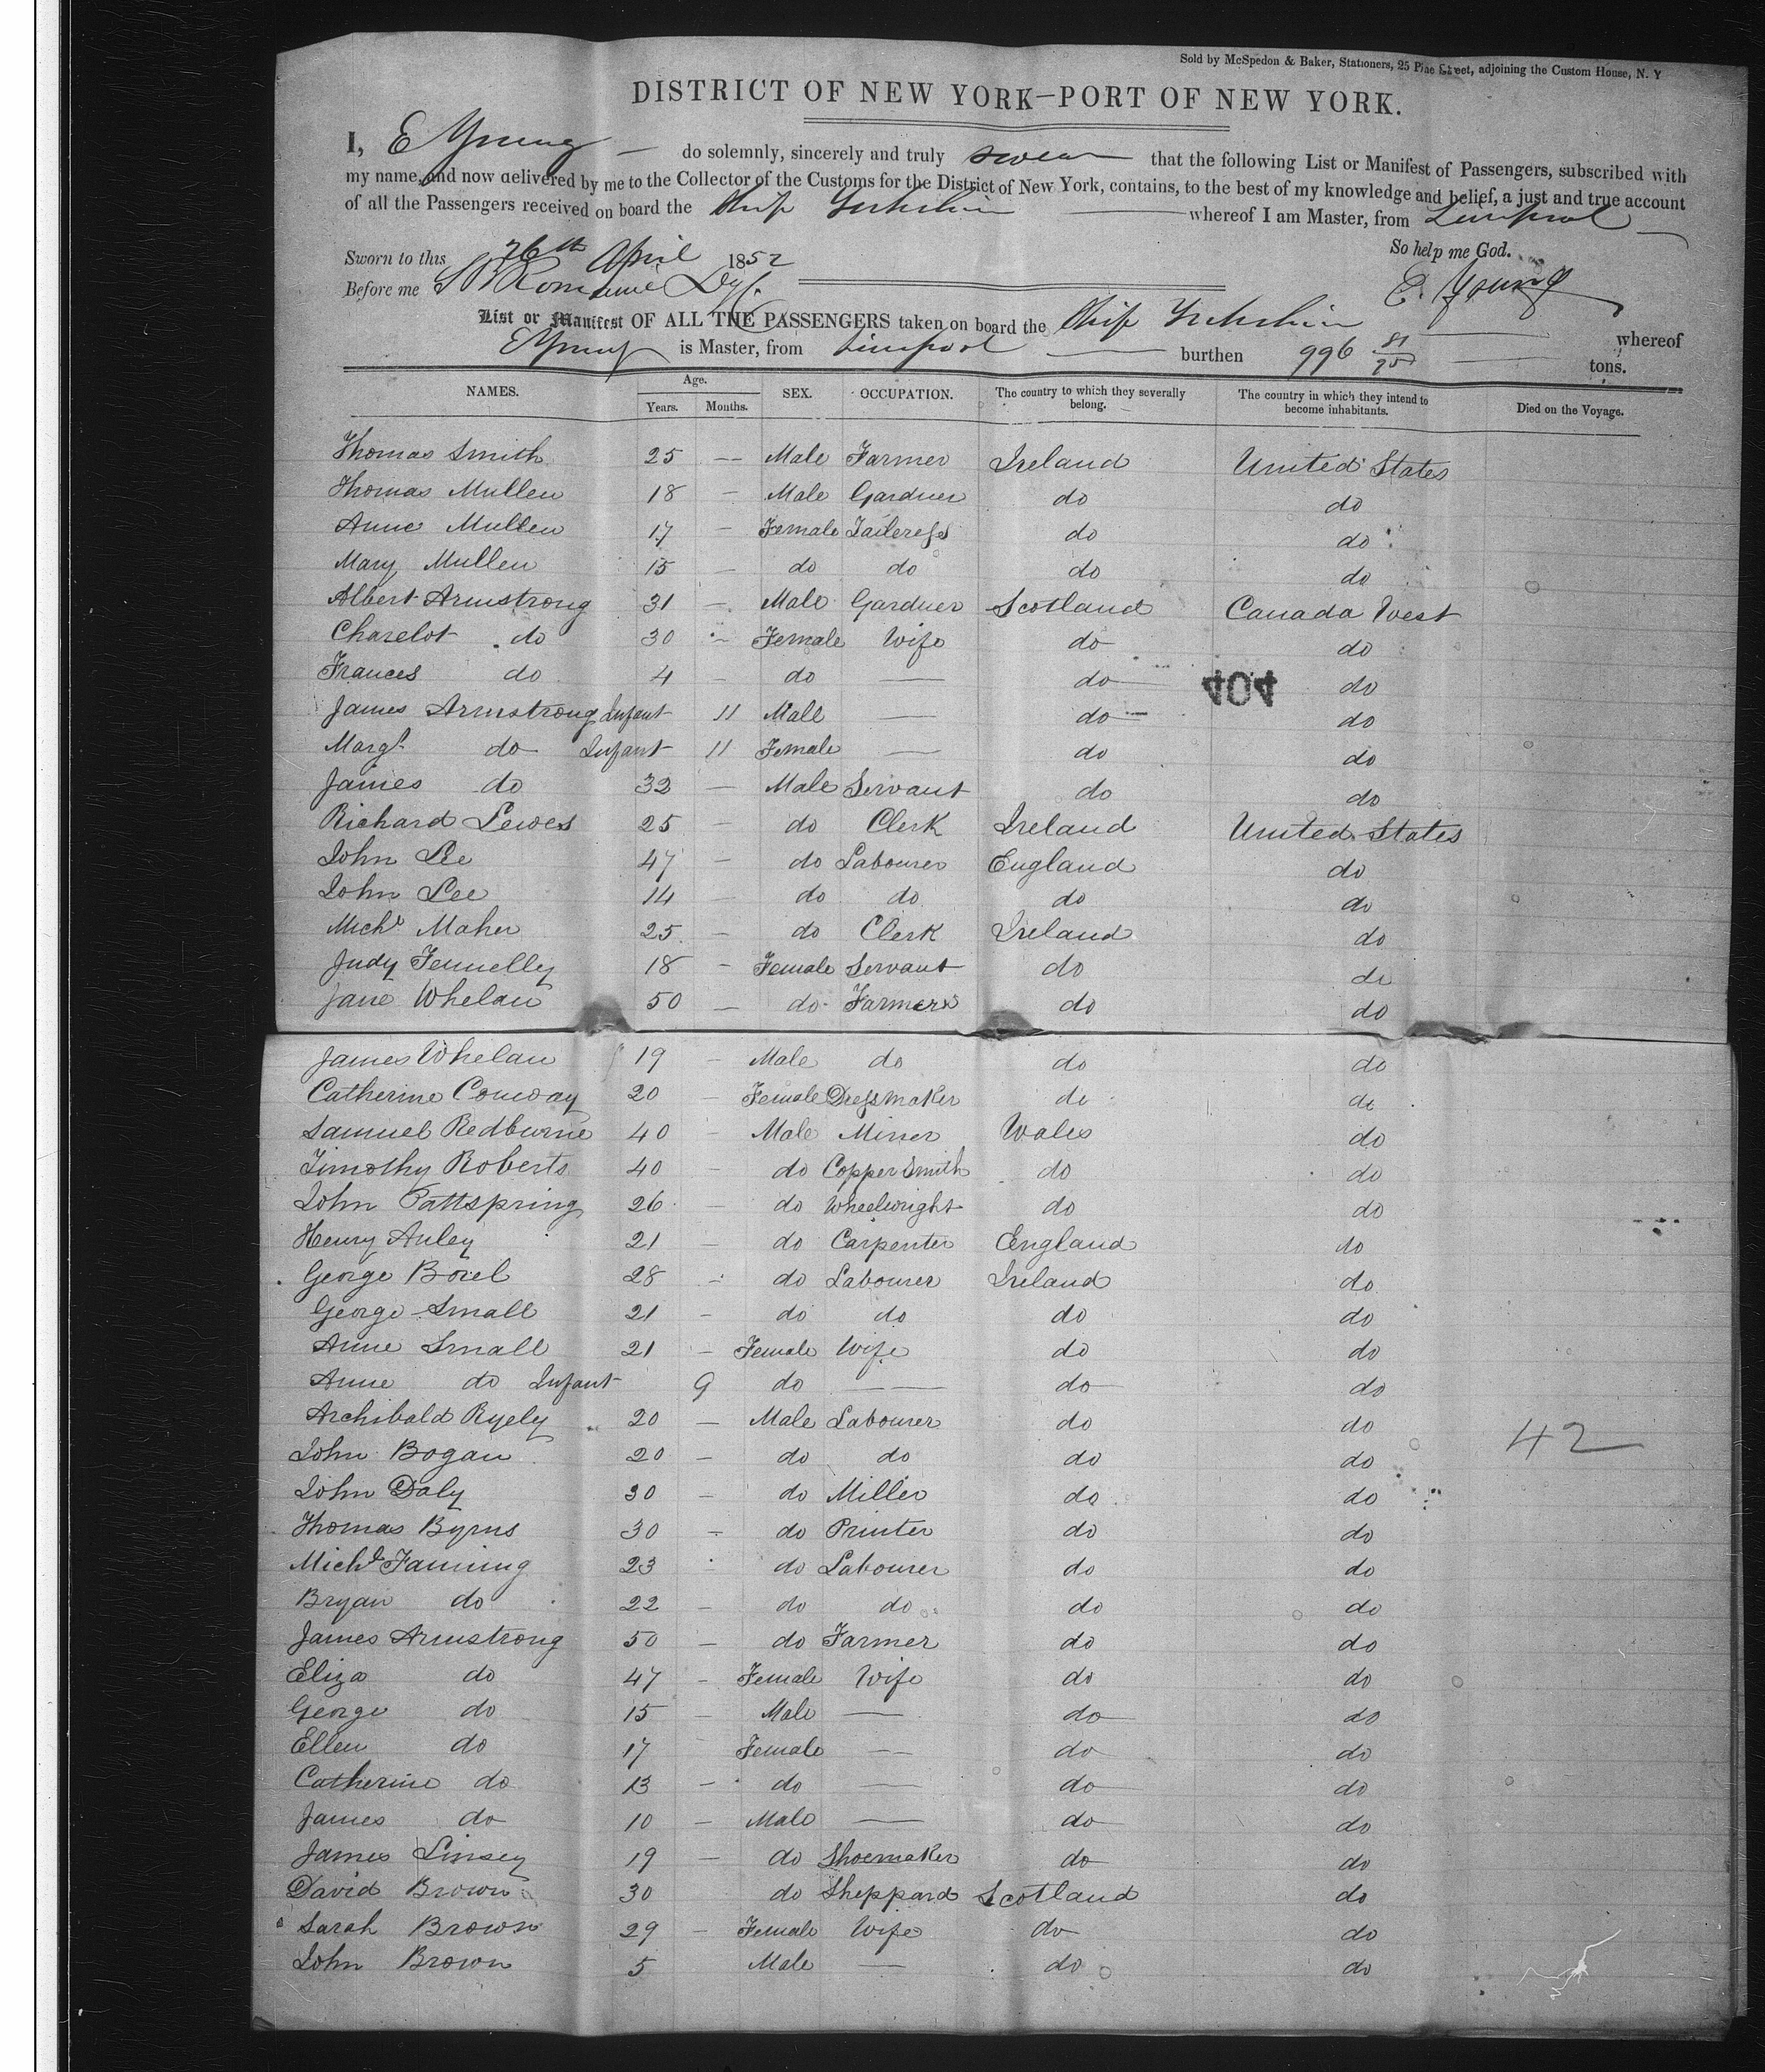 Sold by McSpedon & Baker, Stationers, 25 Pine Street, adjoining the Custom House, N. Y
DISTRICT OF NEW YORK—PORT OF NEW YORK.
I, E Young — do solemnly, sincerely and truly swear that the following List or Manifest of Passengers, subscribed with
my name, and now delivered by me to the Collector of the Customs for the District of New York, contains, to the best of my knowledge and belief, a just and true account
of all the Passengers received on board the Ship Yorkshire — whereof I am Master, from Liverpool —
So help me God.
Sworn to this 26th April 1852
E. Young
Before me
List or Manifest OF ALL THE PASSENGERS taken on board the Ship Yorkshire — whereof
E Young is Master, from Liverpool — burthen 996 81/95 — tons.
NAMES. Age. Years. Months. SEX. OCCUPATION. The country to which they severally belong. The country in which they intend to become inhabitants. Died on the Voyage.
Thomas Smith 25 — Male Farmer Ireland United States
Thomas Mullen 18 — Male Gardner do do
Anne Mullen 17 — Female Taileress do do
Mary Mullen 15 — do do do do
Albert Armstrong 31 — Male Gardner Scotland Canada West
Charelot do 30 — Female Wife do do
Frances do 4 — do — do do
404
James Armstrong Infant 11 Male — do do
Margt do Infant 11 Female — do do
James do 32 — Male Servant do do
Richard Lewes 25 — do Clerk Ireland United States
John Lee 47 — do Labourer England do
John Lee 14 — do do do do
Michl Maher 25 — do Clerk Ireland do
Judy Fennelly 18 — Female Servant do do
Jane Whelan 50 — do Farmers do do
James Whelan 19 — Male do do do
Catherine Conway 20 — Female Dressmaker do do
Samuel Redburne 40 — Male Miner Wales do
Timothy Roberts 40 — do Copper Smith do do
John Pattspring 26 — do Wheelwright do do
Henry Anley 21 — do Carpenter England do
George Boiel 28 — do Labourer Ireland do
George Small 21 — do do do do
Anne Small 21 — Female Wife do do
Anne do Infant 9 do — do do
Archibald Ryely 20 — Male Labourer do do
42
John Bogan 20 — do do do do
John Daly 30 — do Miller do do
Thomas Byrns 30 — do Printer do do
Michl Fanning 23 do Labourer do do
Bryan do 22 — do do do do
James Armstrong 50 — do Farmer do do
Eliza do 47 — Female Wife do do
George do 15 — Male — do do
Ellen do 17 Female — do do
Catherine do 13 — do — do do
James do 10 — Male — do do
James Linsey 19 — do Shoemaker do do
David Brown 30 do Sheppard Scotland do
Sarah Brown 29 — Female Wife do do
John Brown 5 Male — do do